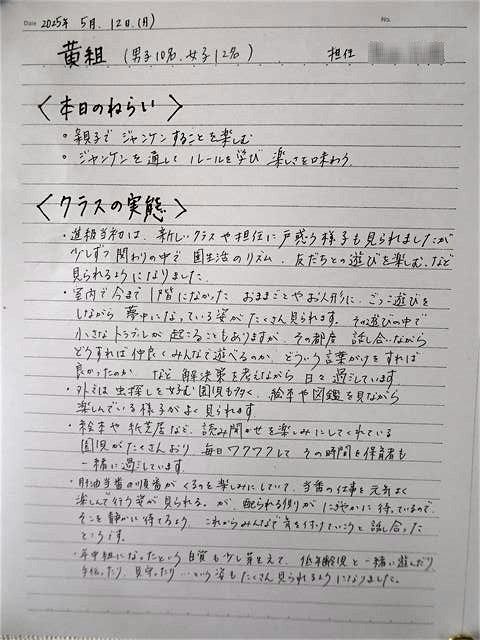 Date 2025年 5月 12日(月) No.
黄組 (男子10名、女子12名) 担任
〈本日のねらい〉
・親子で ジャンケンすることを楽しむ
・ジャンケンを通して ルールを学び 楽しさを味わう
〈クラスの実態〉
・進級当初は、新しいクラスや担任に戸惑う様子も見られましたが
少しずつ関わりの中で 園生活のリズム、友だちとの遊びを楽しむ、など
見られるようになりました。
・室内で今まで1階になかった おままごとやお人形に、ごっこ遊びを
しながら 夢中になっている姿がたくさん見られます。その遊びの中で
小さなトラブルが 起こることもありますが、その都度 話し合いながら
どうすれば仲良くみんなで遊べるのか、どういう言葉がけをすれば
良かったのか、など 解決策を考えながら 日々過ごしています。
・外では虫探しを好む園児も多く、絵本や図鑑を見ながら
楽しんでいる様子がよく見られます。
・絵本や紙芝居など、読み聞かせを楽しみにしてくれている
園児がたくさんおり 毎日ワクワクして その時間を保育者も
一緒に過ごしています。
・肝油当番の順番が くるのを楽しみにしていて、当番の仕事を元気よく
楽しんで行う姿が見られる。が、配られる側が にぎやかに待っているので、
そこを静かに待てるよう、これからみんなで気を付けていこうと話し合った
ところです。
・年中組になったという自覚も少し芽生えて、低年齢児と一緒に遊んだり
手伝ったり、見守ったり…という姿もたくさん見られるようになりました。